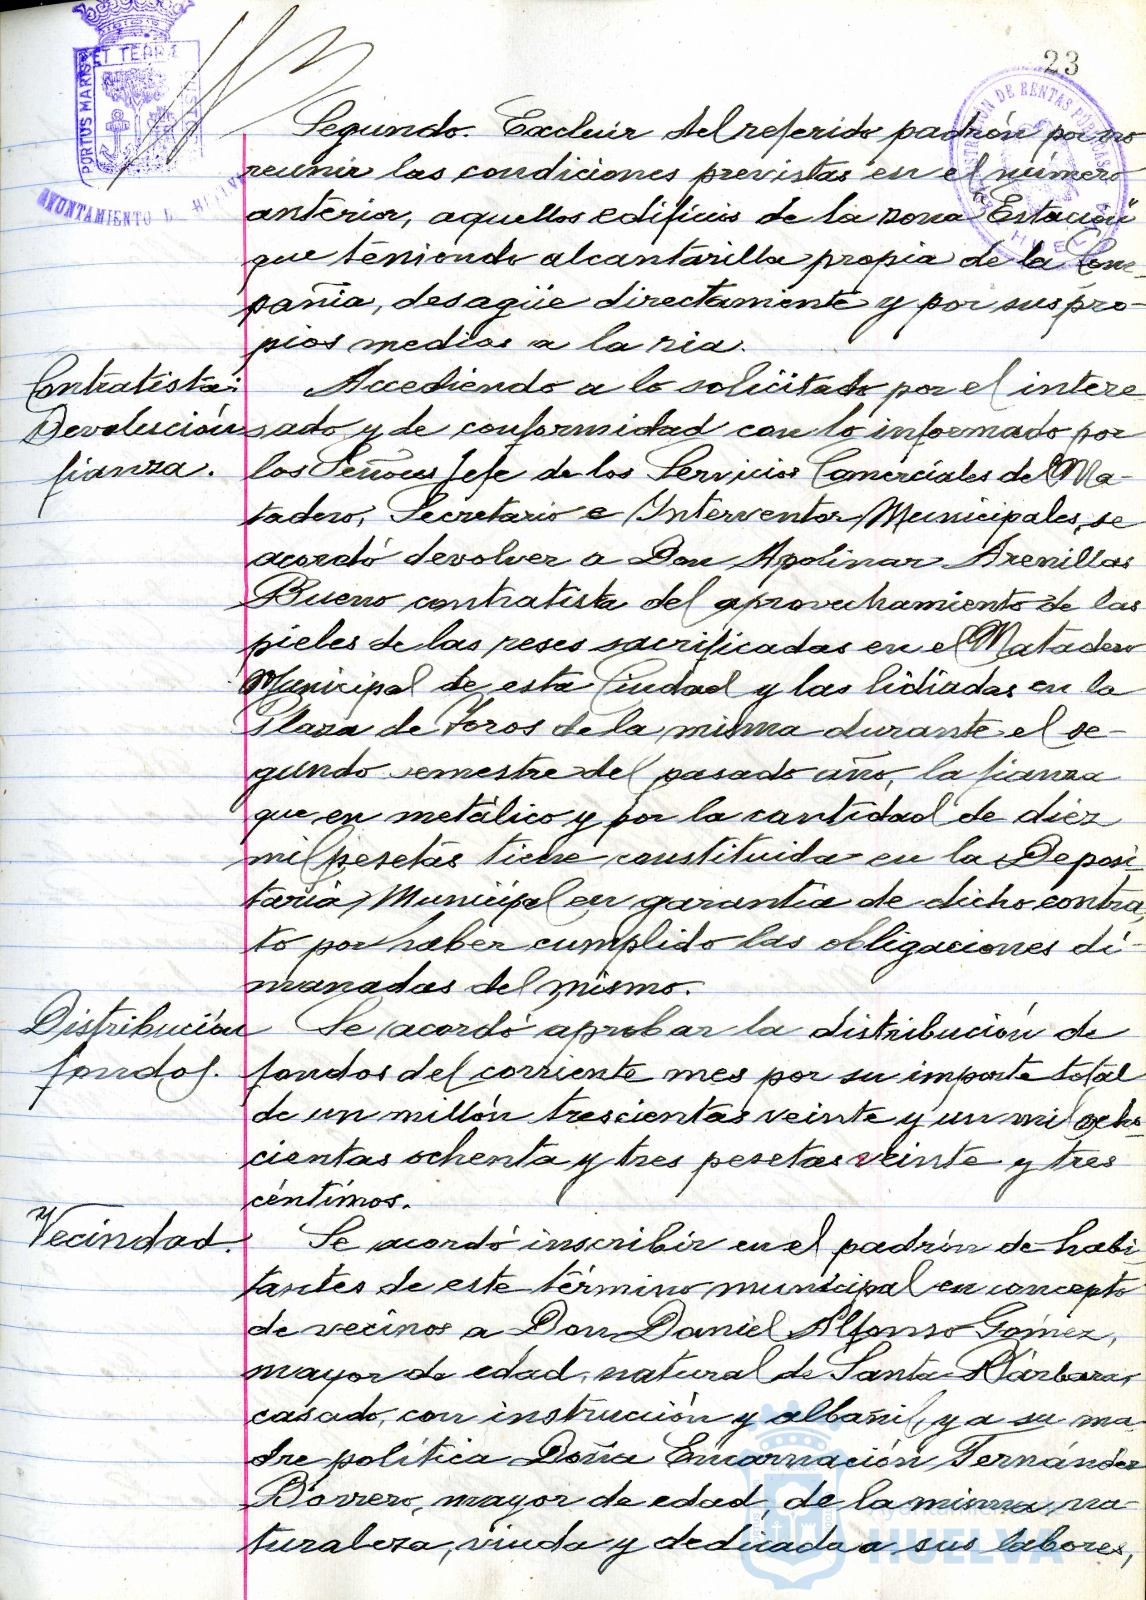 23
PORTUS MARIS ET TERRÆ
AYUNTAMIENTO DE HUELVA
Segundo. Excluir del referido padrón por no
reunir las condiciones previstas en el número
anterior, aquellos edificios de la zona Estación
que teniendo alcantarilla propia de la Com-
pañia, desagüe directamente y por sus pro-
pios medios a la ria.
Contratista:
Devolución
fianza.
Accediendo a lo solicitado por el intere-
sado y de conformidad con lo informado por
los Señores Jefe de los Servicios Comerciales del Ma-
tadero, Secretario e Interventor Municipales, se
acordó devolver a Don Apolinar Arenillas
Bueno contratista del aprovechamiento de las
pieles de las reses sacrificadas en el Matadero
Municipal de esta Ciudad y las lidiadas en la
Plaza de Toros de la misma durante el se-
gundo semestre del pasado año, la fianza
que en metálico y por la cantidad de diez
mil pesetas tiene constituida en la Deposi-
taria Municipal en garantia de dicho contra-
to por haber cumplido las obligaciones di-
manadas del mismo.
Distribución
fondos.
Se acordó aprobar la distribución de
fondos del corriente mes por su importe total
de un millón trescientas veinte y un mil ocho-
cientas ochenta y tres pesetas veinte y tres
céntimos.
Vecindad.
Se acordó inscribir en el padrón de habi-
tantes de este término municipal en concepto
de vecinos a Don Daniel Alfonso Gómez,
mayor de edad, natural de Santa Bárbara,
casado, con instrucción y albañil, y a su ma-
dre política Doña Encarnación Fernández
Borrero, mayor de edad, de la misma na-
turaleza, viuda y dedicada a sus labores,
Ayuntamiento de
HUELVA